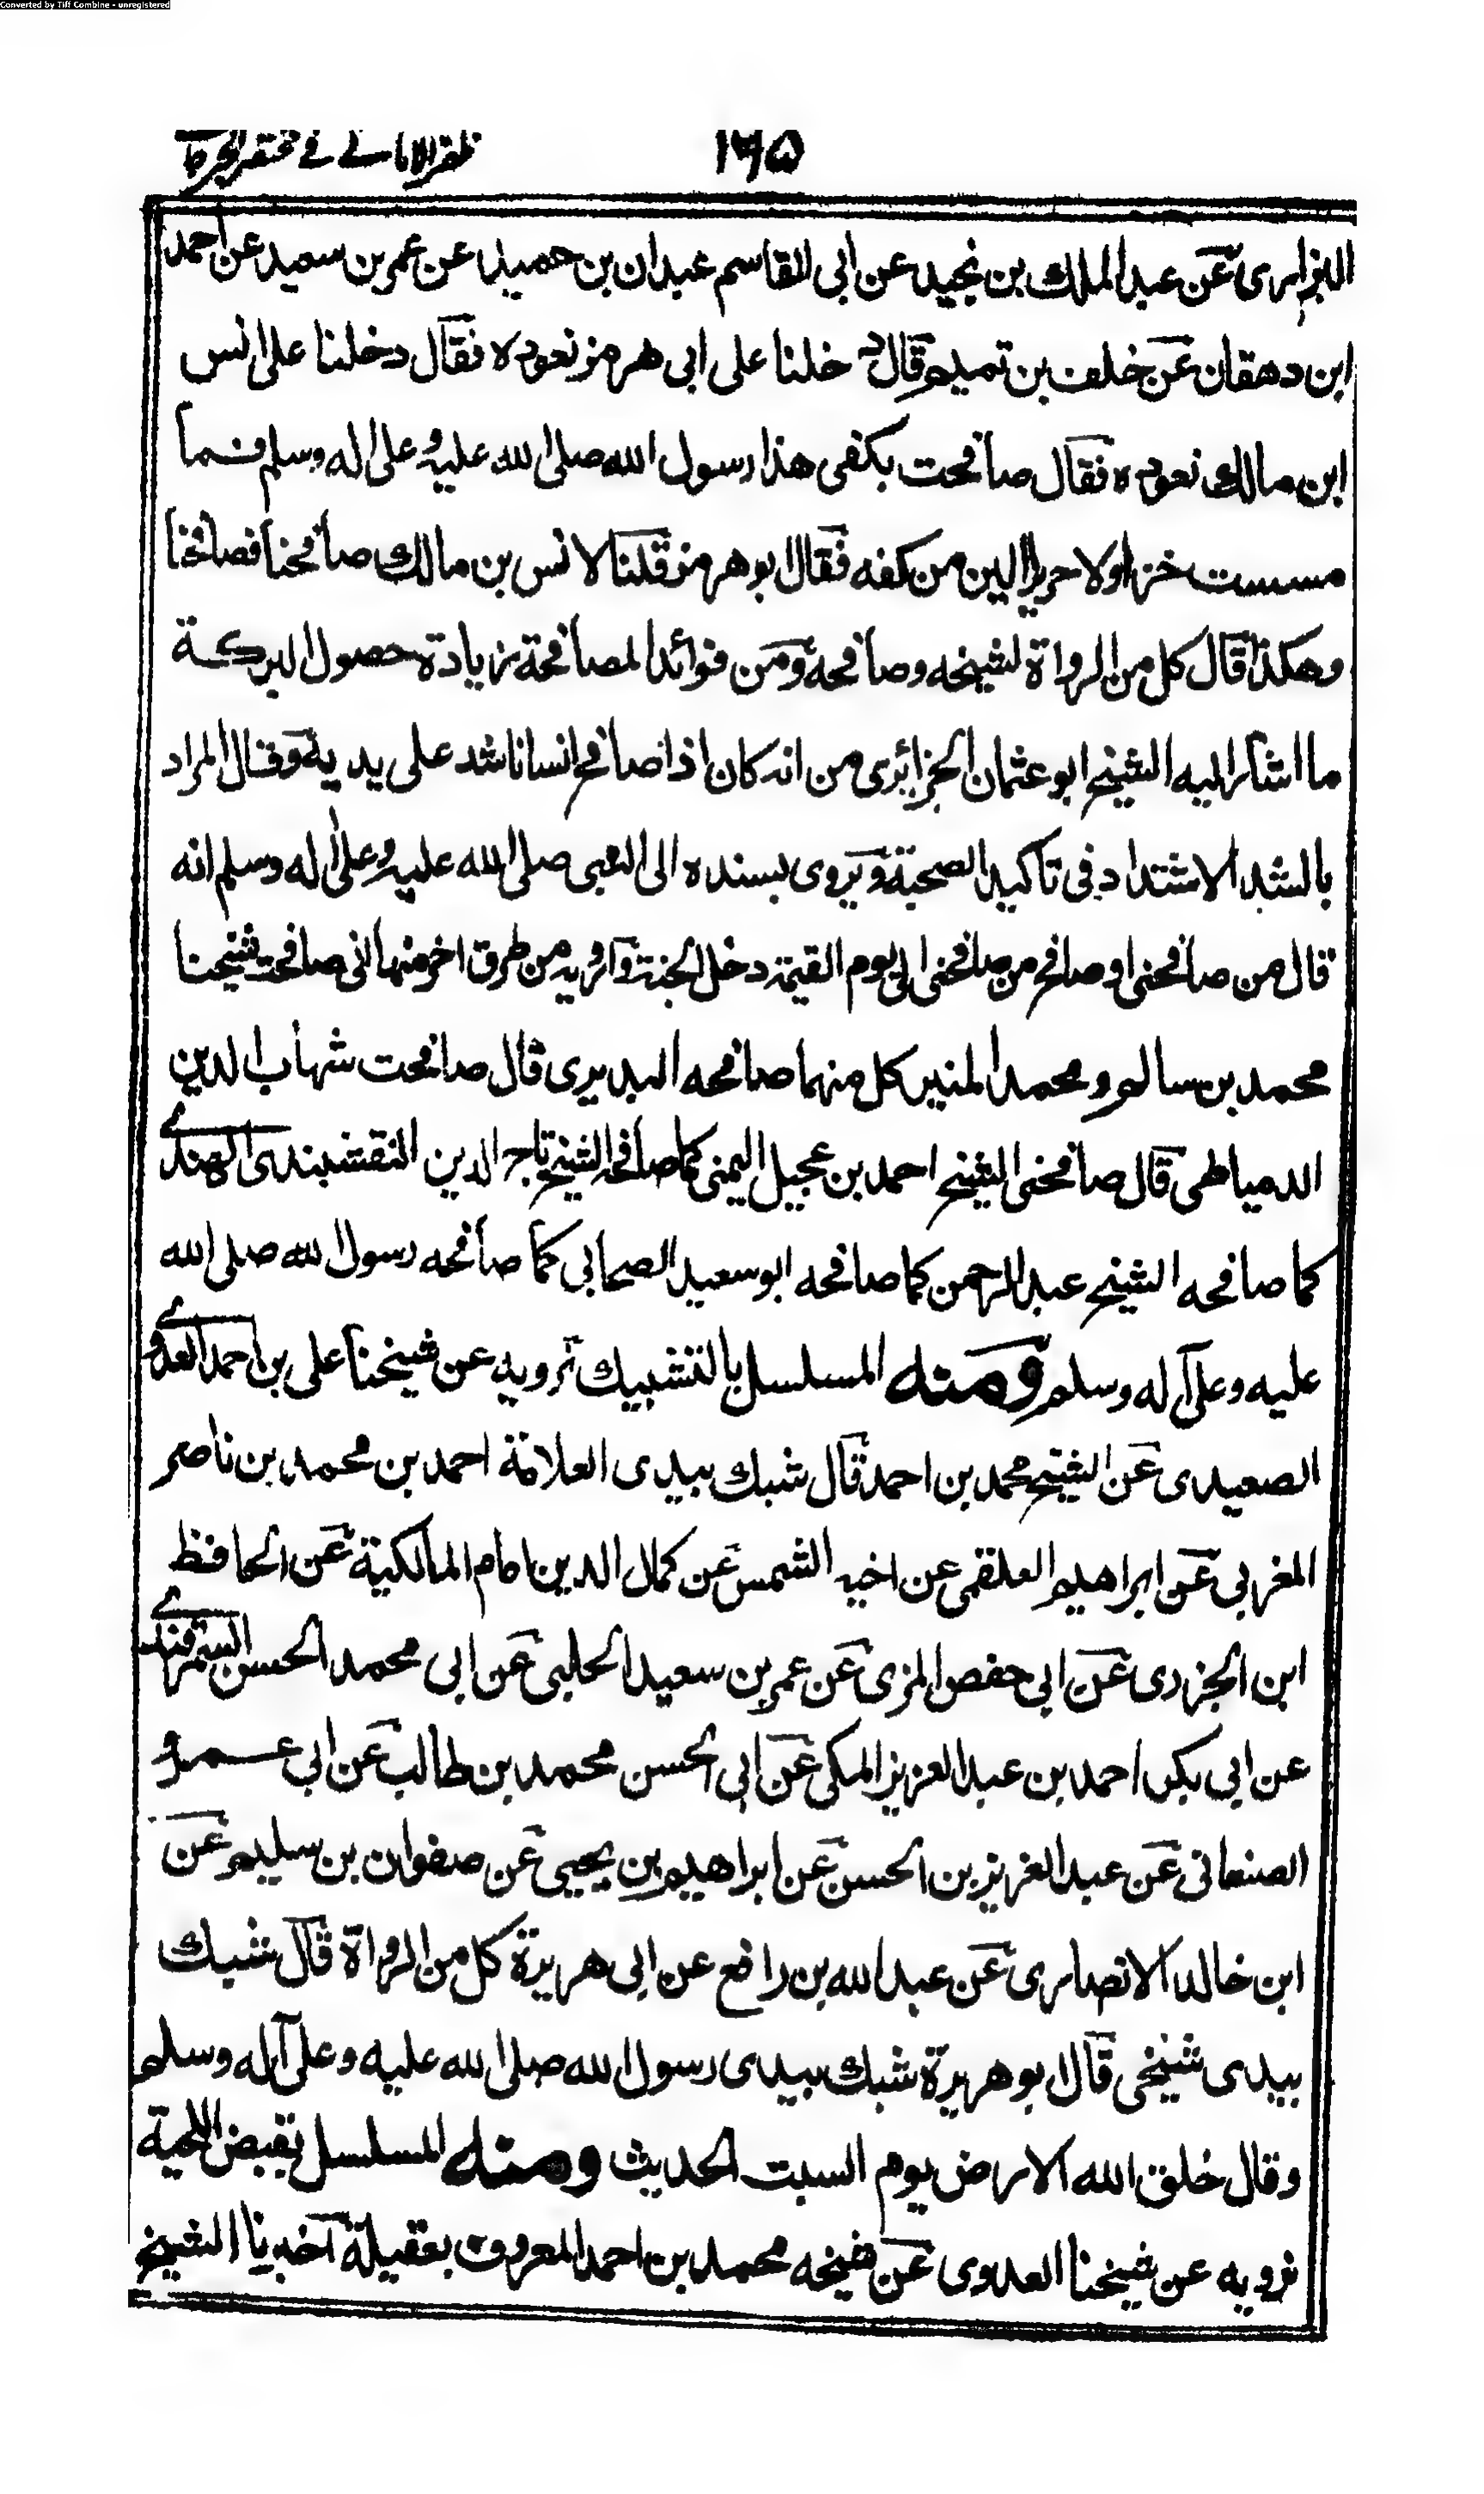 Converted by Tiff Combine - unregistered
١٦٥ ظفر الاماني في مختصر الجرجا
البزاري عن عبد الملك بن نجيد عن ابي القاسم عبدان بن حميد عن عمر بن سعيد عن احمد
ابن دهقان عن خلف بن تميم قال دخلنا على ابي هرمز نعوده فقال دخلنا على انس
ابن مالك نعوده فقال صافحت بكفي هذا رسول الله صلى الله عليه وعلى اله وسلم فما
مسست خزا ولا حريرا الين من كفه فقال ابو هرمز قلنا لانس بن مالك صافحنا فصافحنا
وهكذا قال كل من الرواة لشيخه وصافحه ومن فوائد المصافحة زيادة حصول البركة
ما اشار اليه الشيخ ابو عثمان الجزائري من انه كان اذا صافح انسانا شد على يديه وقال المراد
بالشد الاشتداد في تاكيد الصحبة ويروى بسنده الى النبي صلى الله عليه وعلى اله وسلم انه
قال من صافحني او صافح من صافحني الى يوم القيمة دخل الجنة وارويه من طرق اخر منها اني صافحت شيخنا
محمد بن سالم ومحمد المنير كل منهما صافحه البديري قال صافحت شهاب الدين
الدمياطي قال صافحني الشيخ احمد بن عجيل اليمني كما صافحه الشيخ تاج الدين النقشبندي الهندي
كما صافحه الشيخ عبد الرحمن كما صافحه ابو سعيد الصحابي كما صافحه رسول الله صلى الله
عليه وعلى آله وسلم ومنه المسلسل بالتشبيك نرويه عن شيخنا علي بن احمد العدوي
الصعيدي عن الشيخ محمد بن احمد قال شبك بيدي العلامة احمد بن محمد بن ناصر
المغربي عن ابراهيم العلقمي عن اخيه الشمس عن كمال الدين امام المالكية عن الحافظ
ابن الجزري عن ابي حفص المزي عن عمر بن سعيد الحلبي عن ابي محمد الحسن السمرقندي
عن ابي بكر احمد بن عبد العزيز المكي عن ابي الحسن محمد بن طالب عن ابي عمرو
الصنعاني عن عبد العزيز بن الحسن عن ابراهيم بن يحيى عن صفوان بن سليم عن
ابن خالد الانصاري عن عبد الله بن رافع عن ابي هريرة كل من الرواة قال شبك
بيدي شيخي قال ابو هريرة شبك بيدي رسول الله صلى الله عليه وعلى آله وسلم
وقال خلق الله الارض يوم السبت الحديث ومنه المسلسل بقبض اللحية
نرويه عن شيخنا العدوي عن شيخه محمد بن احمد المعروف بعقيلة اخبرنا الشيخ